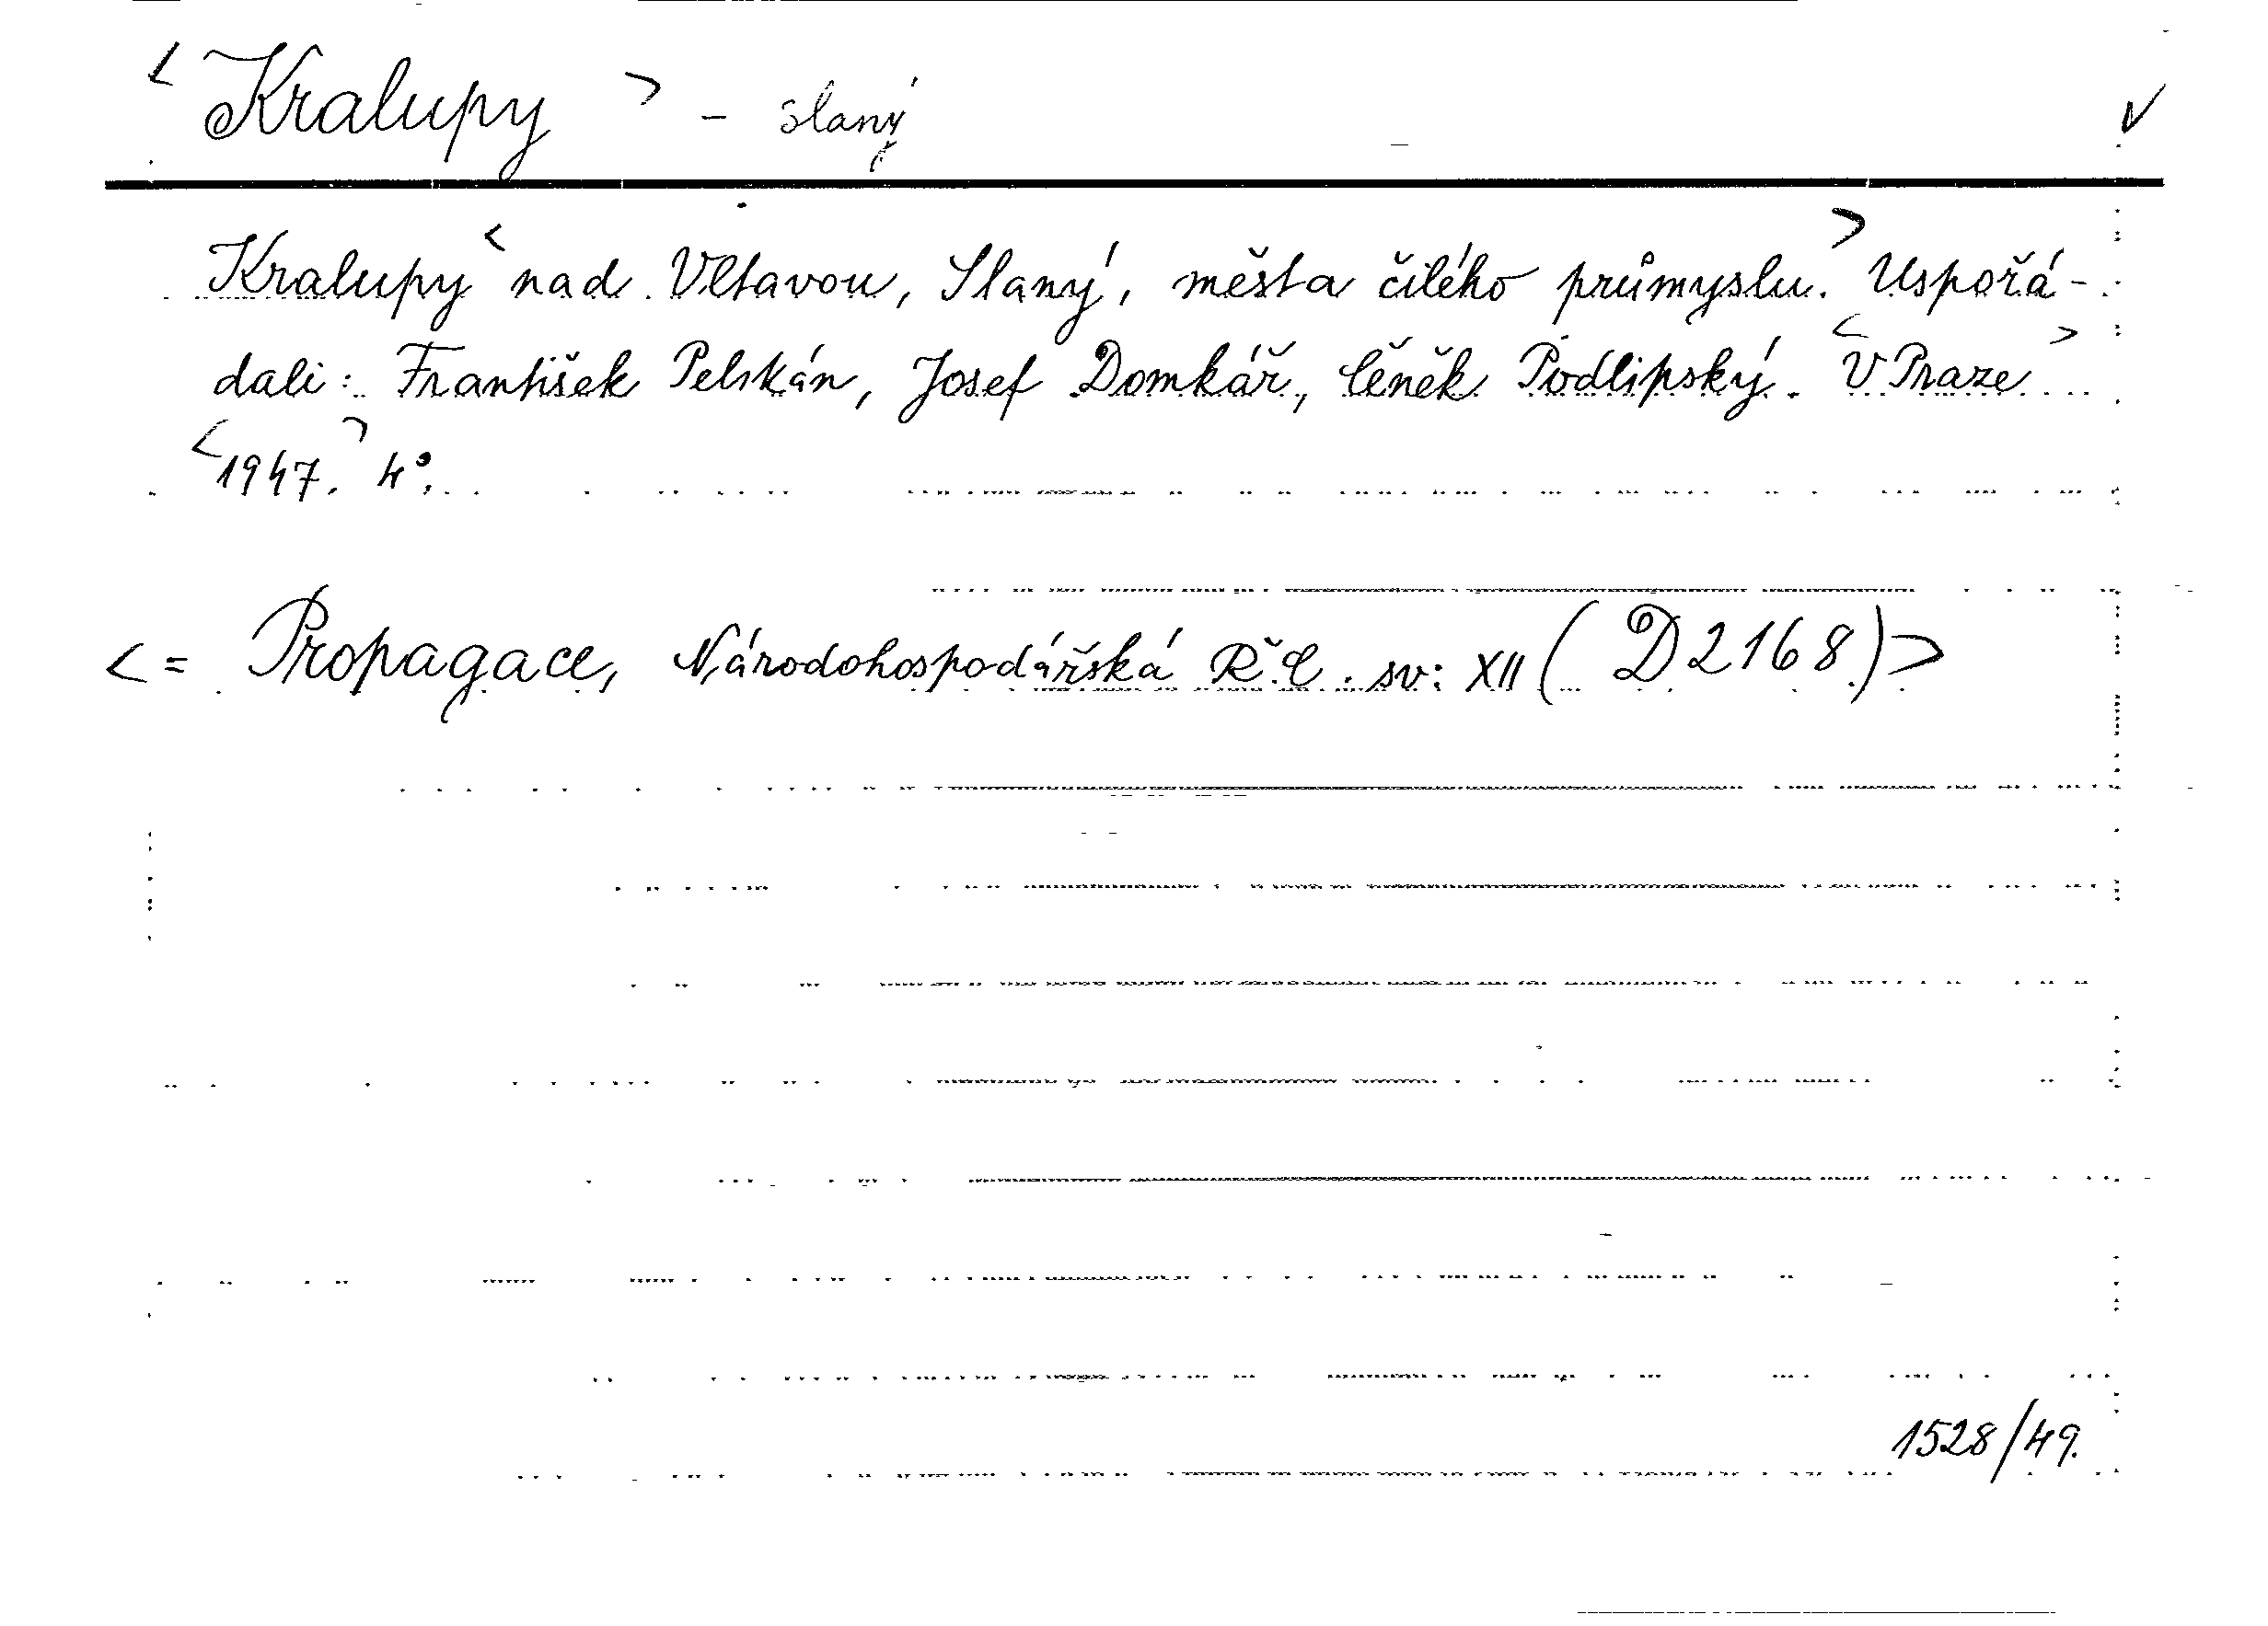 <Kralupy> - slaný
Kralupy <nad Vltavou, Slaný, města čilého průmyslu.> Uspořá-
dali: František Pelikán, Josef Domkář, Čeněk Podlipský. <V Praze>
<1947.> 4°.
<= Propagace, Národohospodářská R.Č. sv: XII (D2168)>
1528/49.